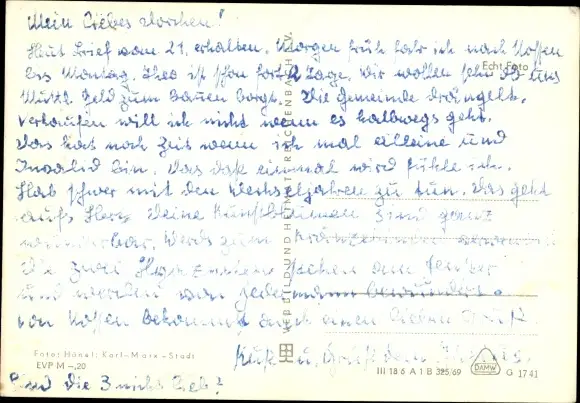 Mein liebes Dorchen!
Heut Brief vom 21. erhalten. Morgen früh fahr ich nach Nossen
bis Montag. Theo ist schon fort 2 Tage. Wir wollen sehn ob uns
Mutti Geld zum Bauen borgt. Die Gemeinde drängelt.
Verkaufen will ich nicht wenn es halbwegs geht.
Das hat noch Zeit wenn ich mal alleine und
Invalid bin. Das das einmal wird fühle ich.
Hab schwer mit den Wechseljahren zu tun. Das geht
aufs Herz. Deine Kunstblumen sind ganz
wunderbar. zum
Die zwei stehen am Fenster
und werden von jedermann bewundert.
von Nossen bekommt auch einen lieben Gruß.
Kuß u. Gruß
und die 3 nicht lieb?
Echt Foto
VEB BILD UND HEIMAT REICHENBACH I. V.
Foto: Hänel, Karl-Marx-Stadt
EVP M -,20
III 18 6 A 1 B 325/69
DAMW
G 1741